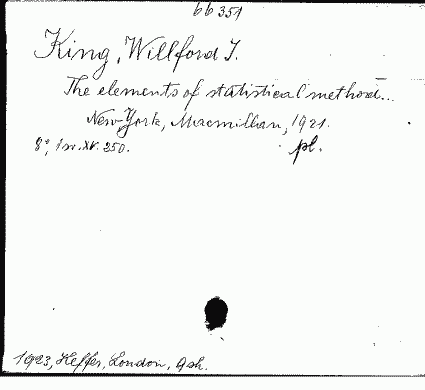 66351
King, Willford I.
The elements of statistical method...
New-York, Macmillan, 1921.
8°, 1 w. XV. 250. pl.
1923, Heffer, London, Ash.